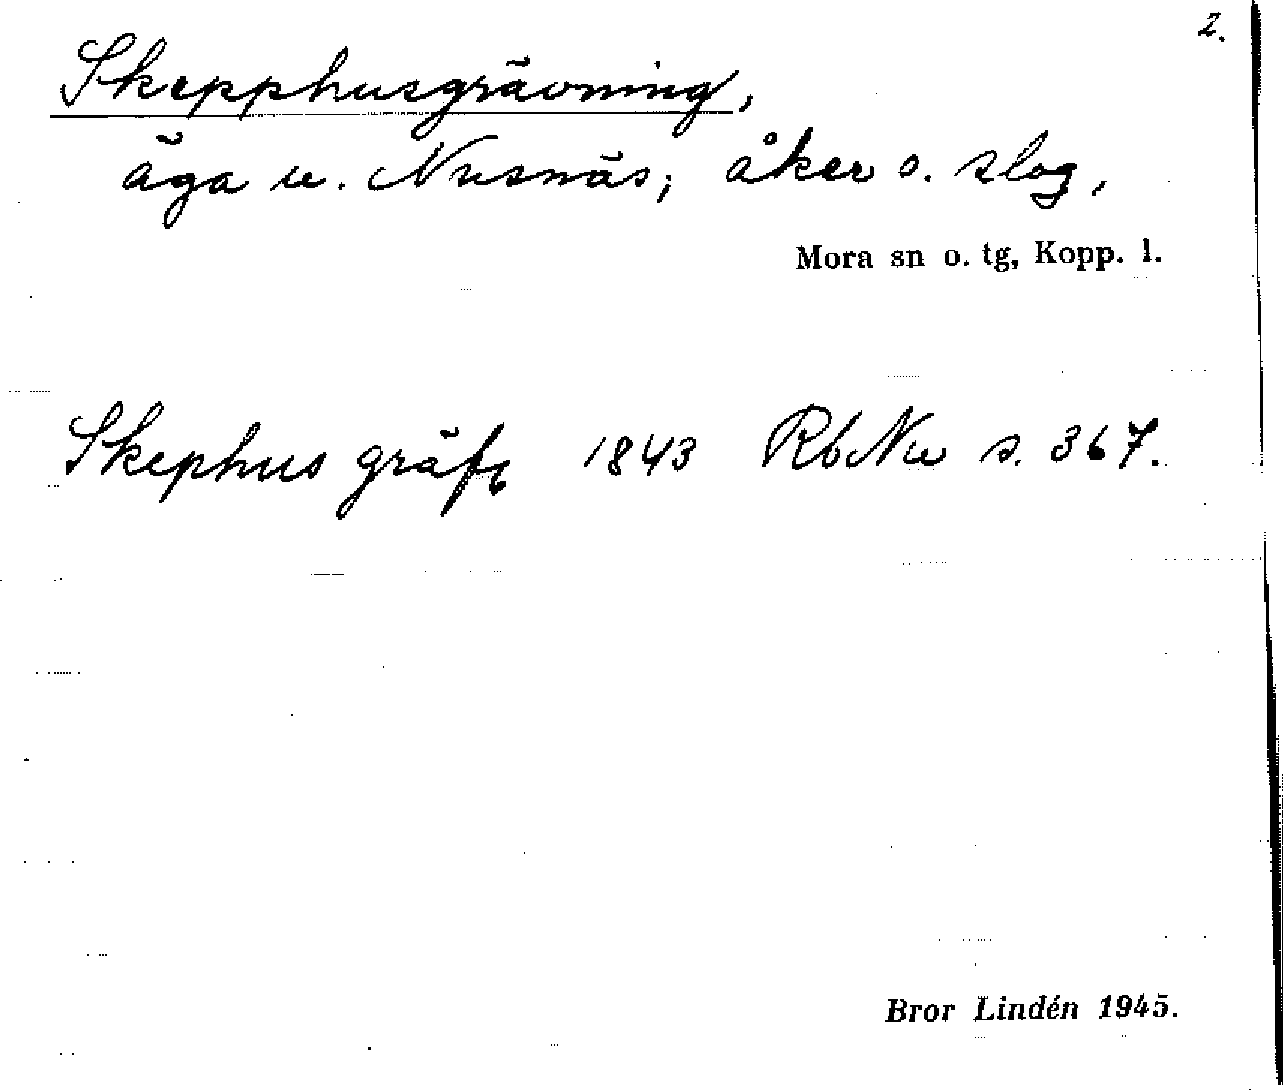 2.
Skepphusgrävning,
äga u. Nusnäs; åker o. slog,
Mora sn o. tg, Kopp. l.
Skephus gräfg 1843 RbNu s. 367.
Bror Lindén 1945.